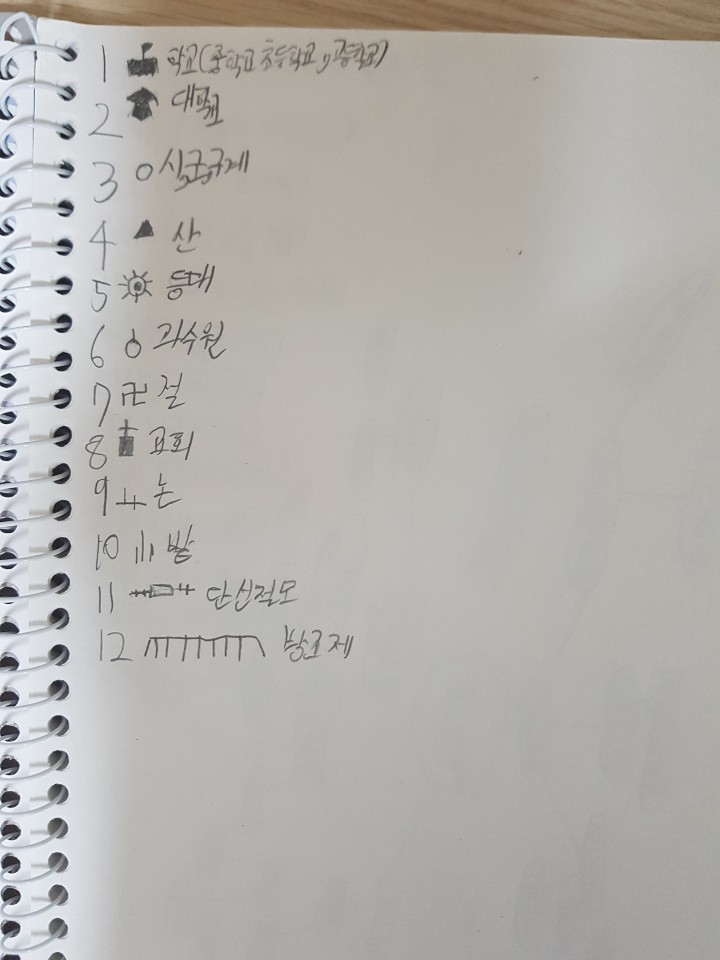 1 학교(중학교 초등학교, 고등학교)
2 대학교
3 시,군,구계
4 산
5 등대
6 과수원
7 卍 절
8 교회
9 논
10 밭
11 단신철모
12 방조제